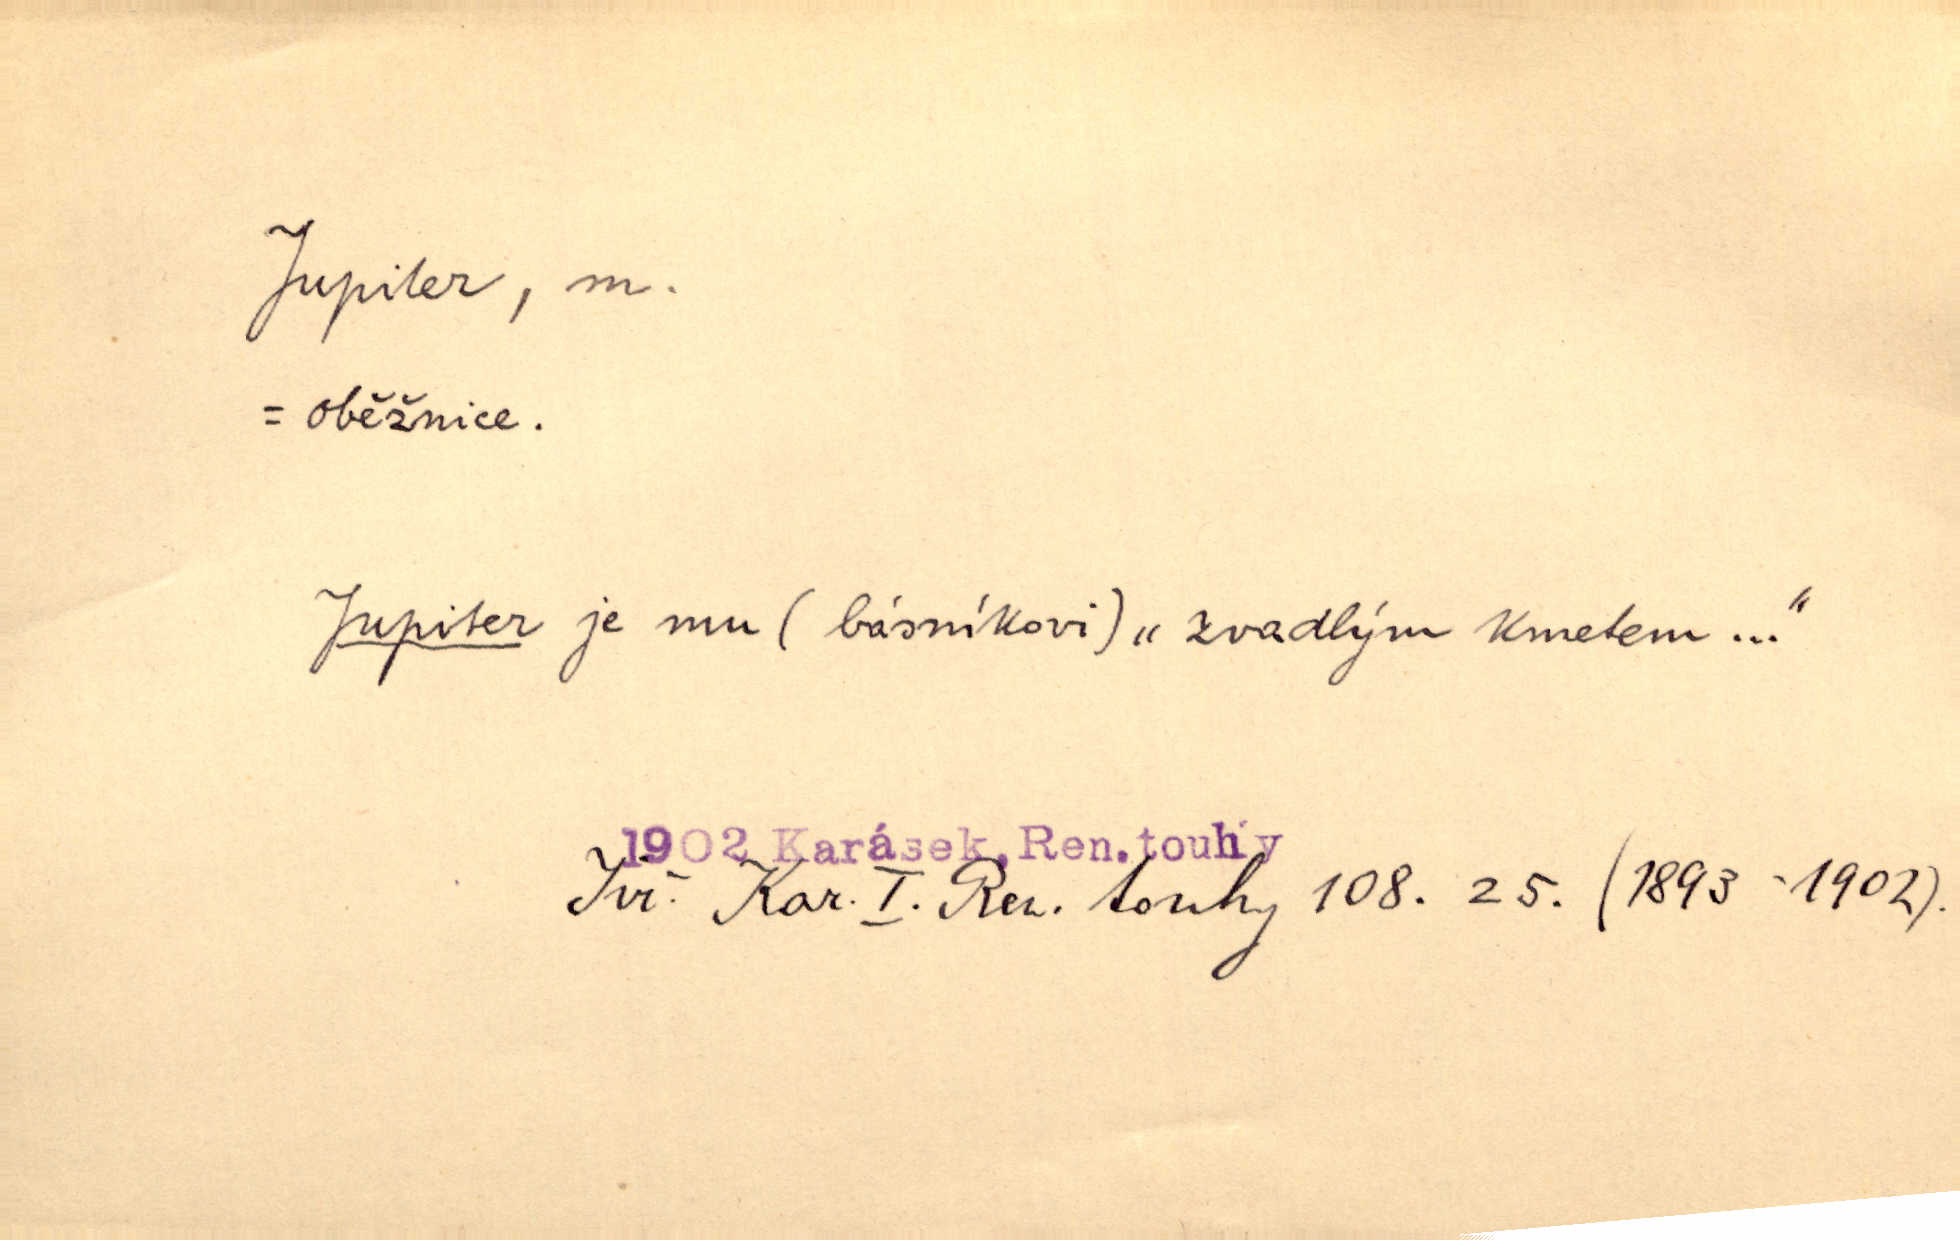 Jupiter, m.
= oběžnice.
Jupiter je mu (básníkovi) „zvadlým kmetem ...“
1902 Karásek, Ren. touhy
Jiř. Kar. I. Ren. touhy 108. 25. (1893 - 1902).